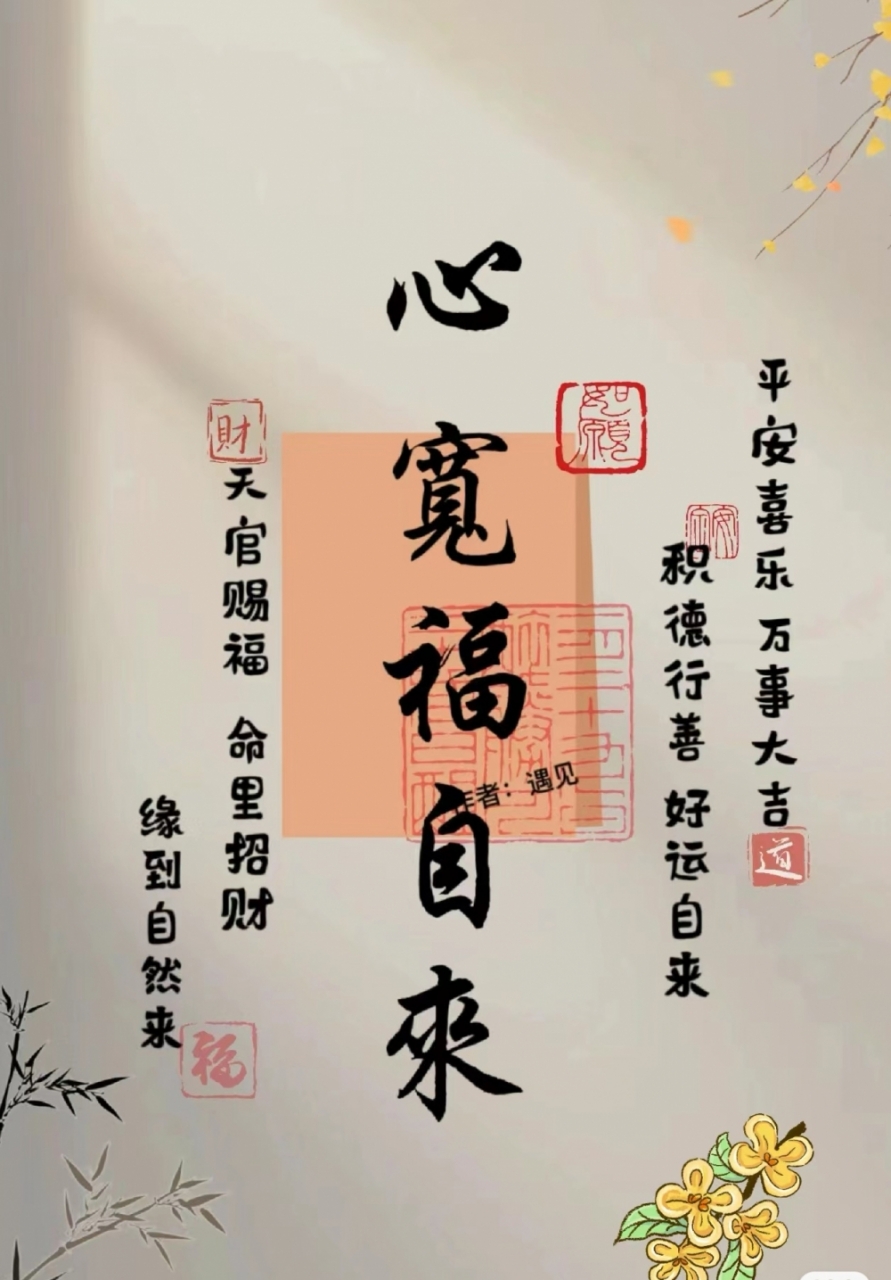 平安喜乐 万事大吉
道
安
积德行善 好运自来
如願
心寬福自來
作者：遇见
財
天官赐福 命里招财
缘到自然来
福